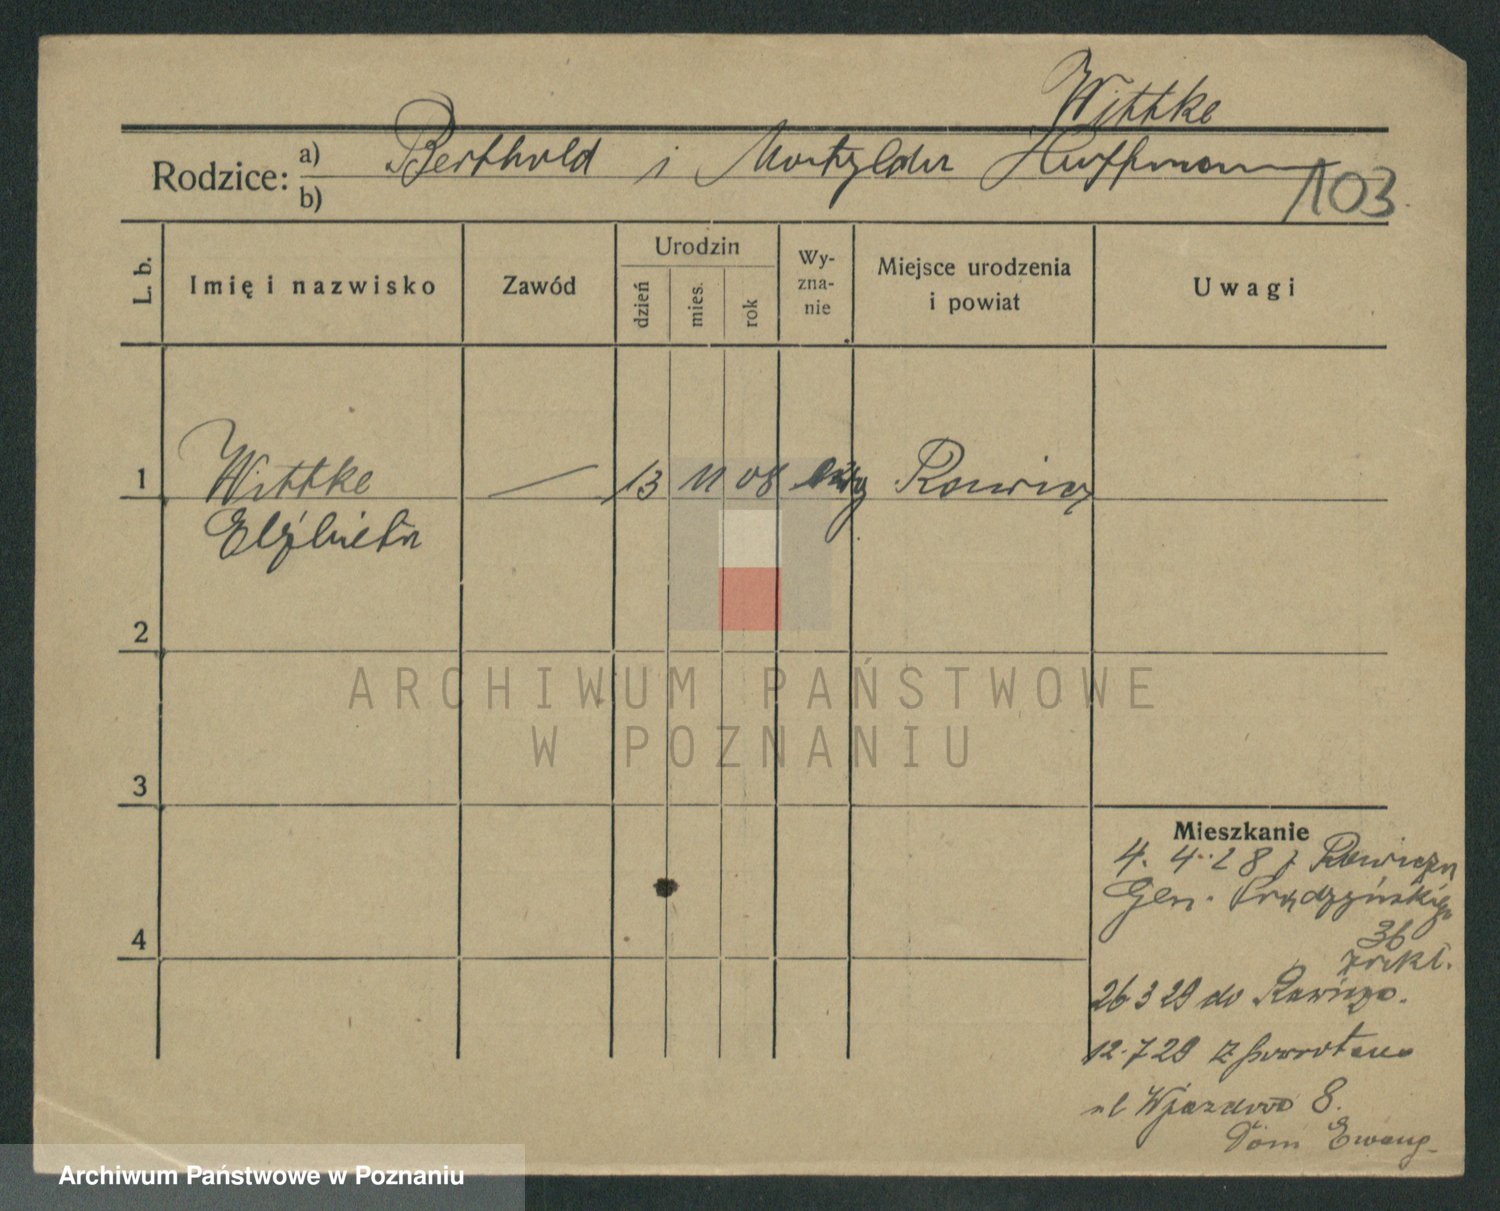 Wittke
Rodzice: a) Berthold i Matylda Huffmann
b)
103
L. b.
Imię i nazwisko
Zawód
Urodzin
dzień
mies.
rok
Wy-
zna-
nie
Miejsce urodzenia
i powiat
Uwagi
1 Wittke — 13 11 08 Rawicz
Elżbieta
2
ARCHIWUM PAŃSTWOWE
W POZNANIU
3
Mieszkanie
4. 4. 28 z Rawicza
Gen. Prądzyńskiego
36
4
26 3 29 do Rawicza.
12.7 29 z powrotem
ul Wjazdowa 8.
Dom Ewang.
Archiwum Państwowe w Poznaniu